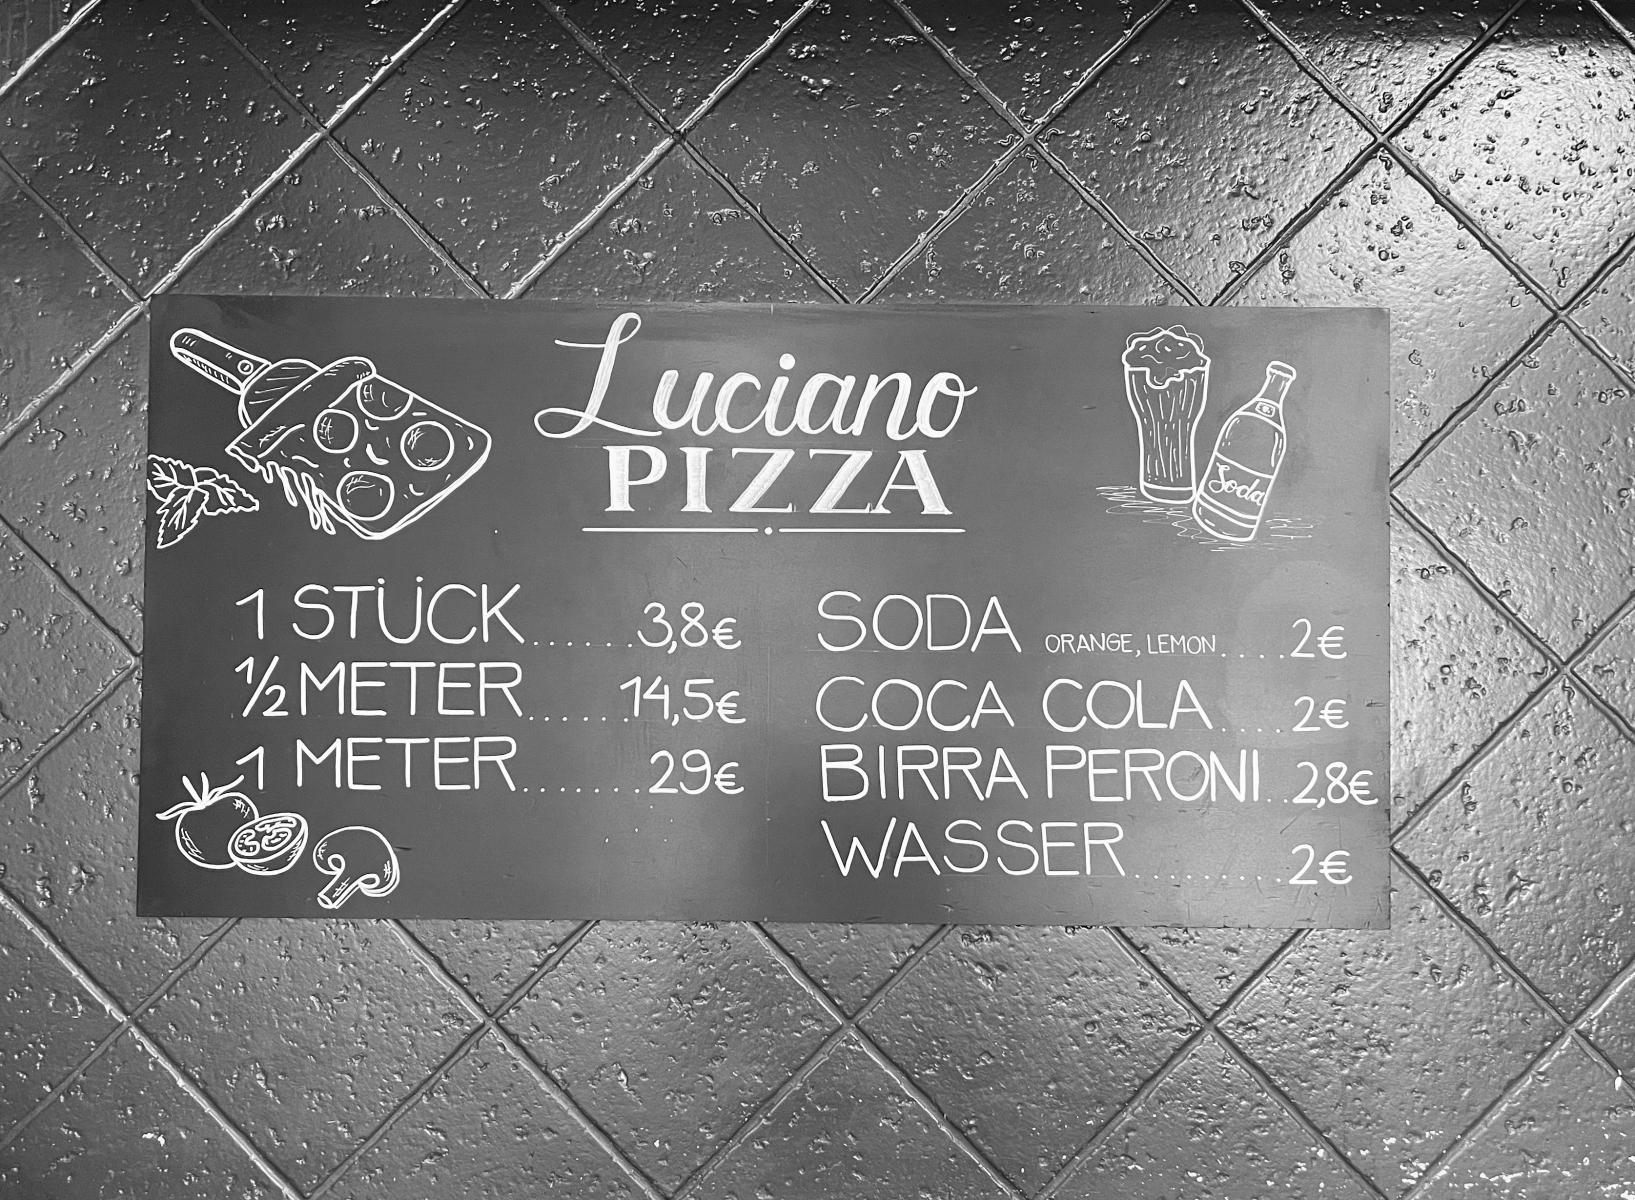 Luciano
PIZZA
Soda
1 STÜCK......3,8€
½ METER.......14,5€
1 METER........29€
SODA ORANGE, LEMON.....2€
COCA COLA.....2€
BIRRA PERONI..2,8€
WASSER..........2€